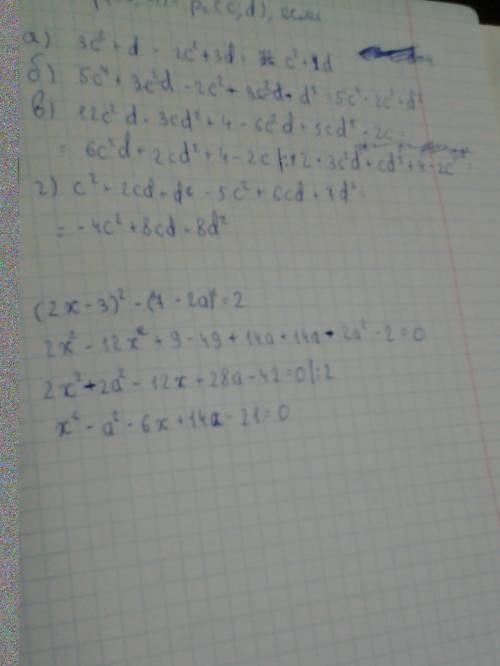 p₂(c,d), если
а) 3c² + d - 2c² + 3d = c² + 4d
б) 5c⁴ + 3c²d - 2c² + 3c²d + d² = 5c⁴ - 2c² + d²
в) 12c²d - 3cd² + 4 - 6c²d + 5cd² - 2c =
= 6c²d + 2cd² + 4 - 2c |:2 = 3c²d + cd² +
г) c² + 2cd + - 5c² + 6cd +
= -4c² + 8cd + 8d²
(2x - 3)² - (7 - 2a)² = 2
2x² - 12x + 9 - 49 + 14a + 14a - 2a² - 2 = 0
2x² - 2a² - 12x + 28a - 42 = 0 |:2
x² - a² - 6x + 14a - 21 = 0